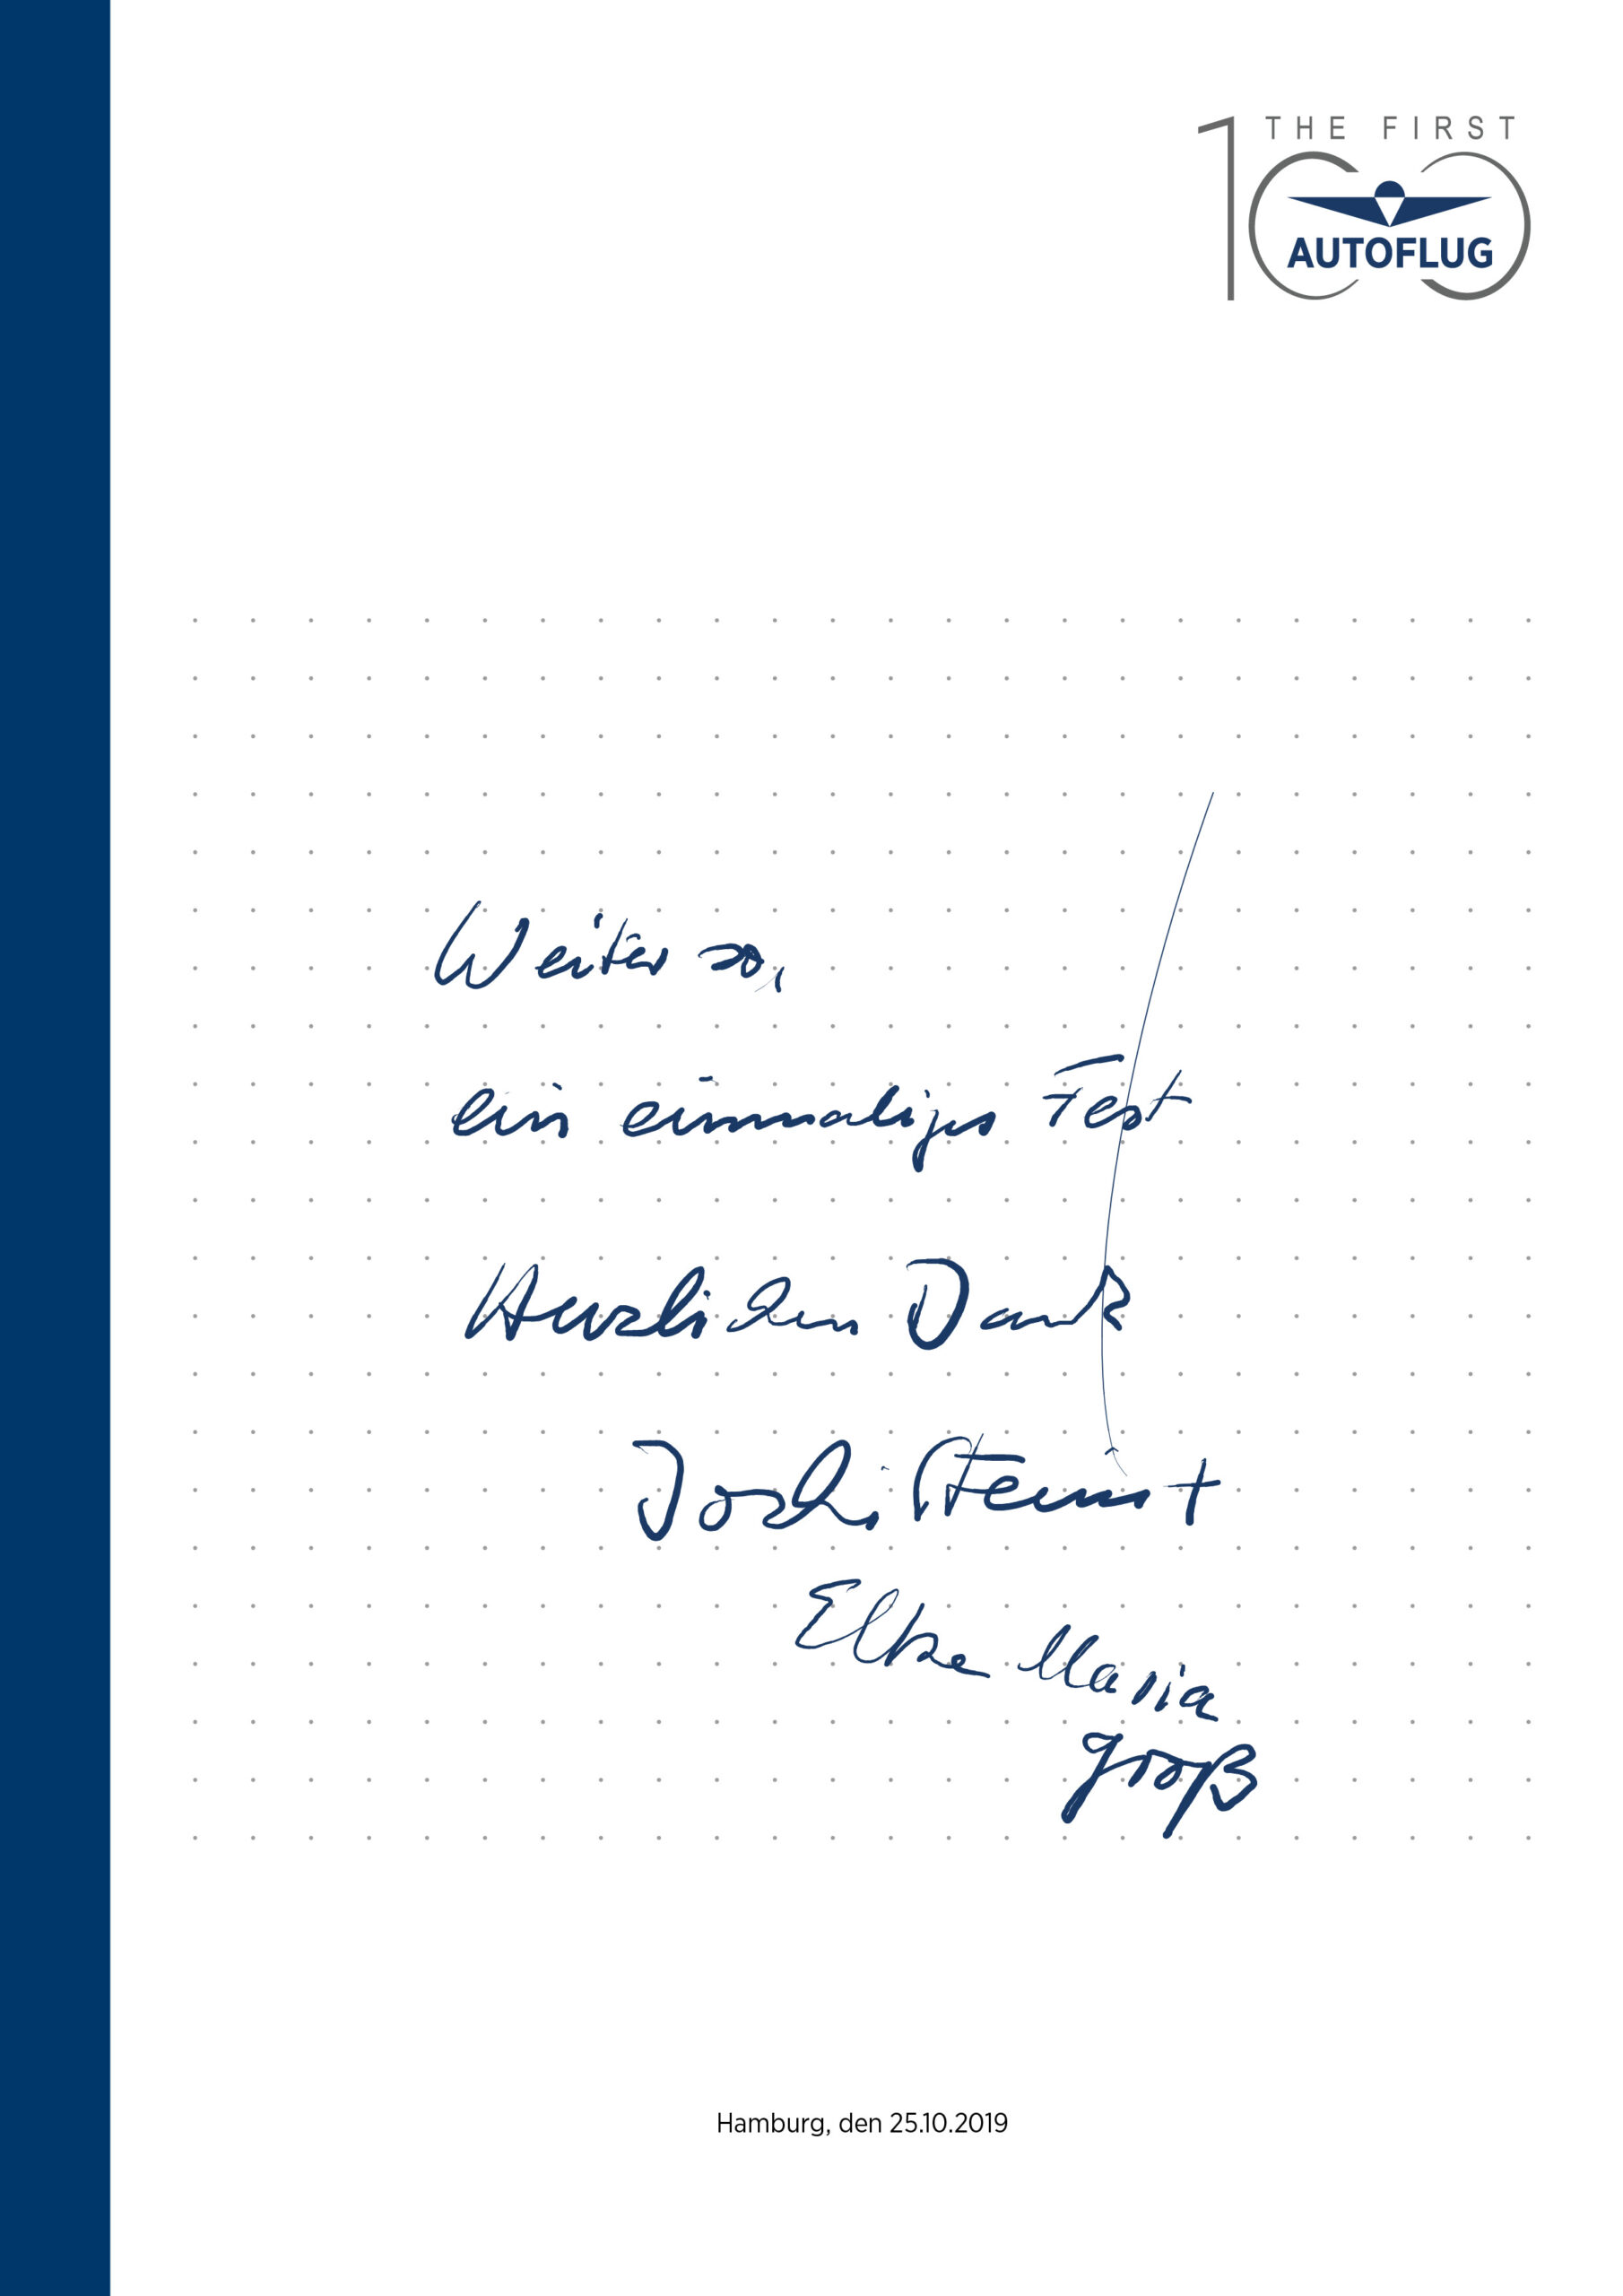 THE FIRST
100
AUTOFLUG
Weiter so,
ein einmaliges Fest
Herzlichen Dank
Elke Maria
Hamburg, den 25.10.2019